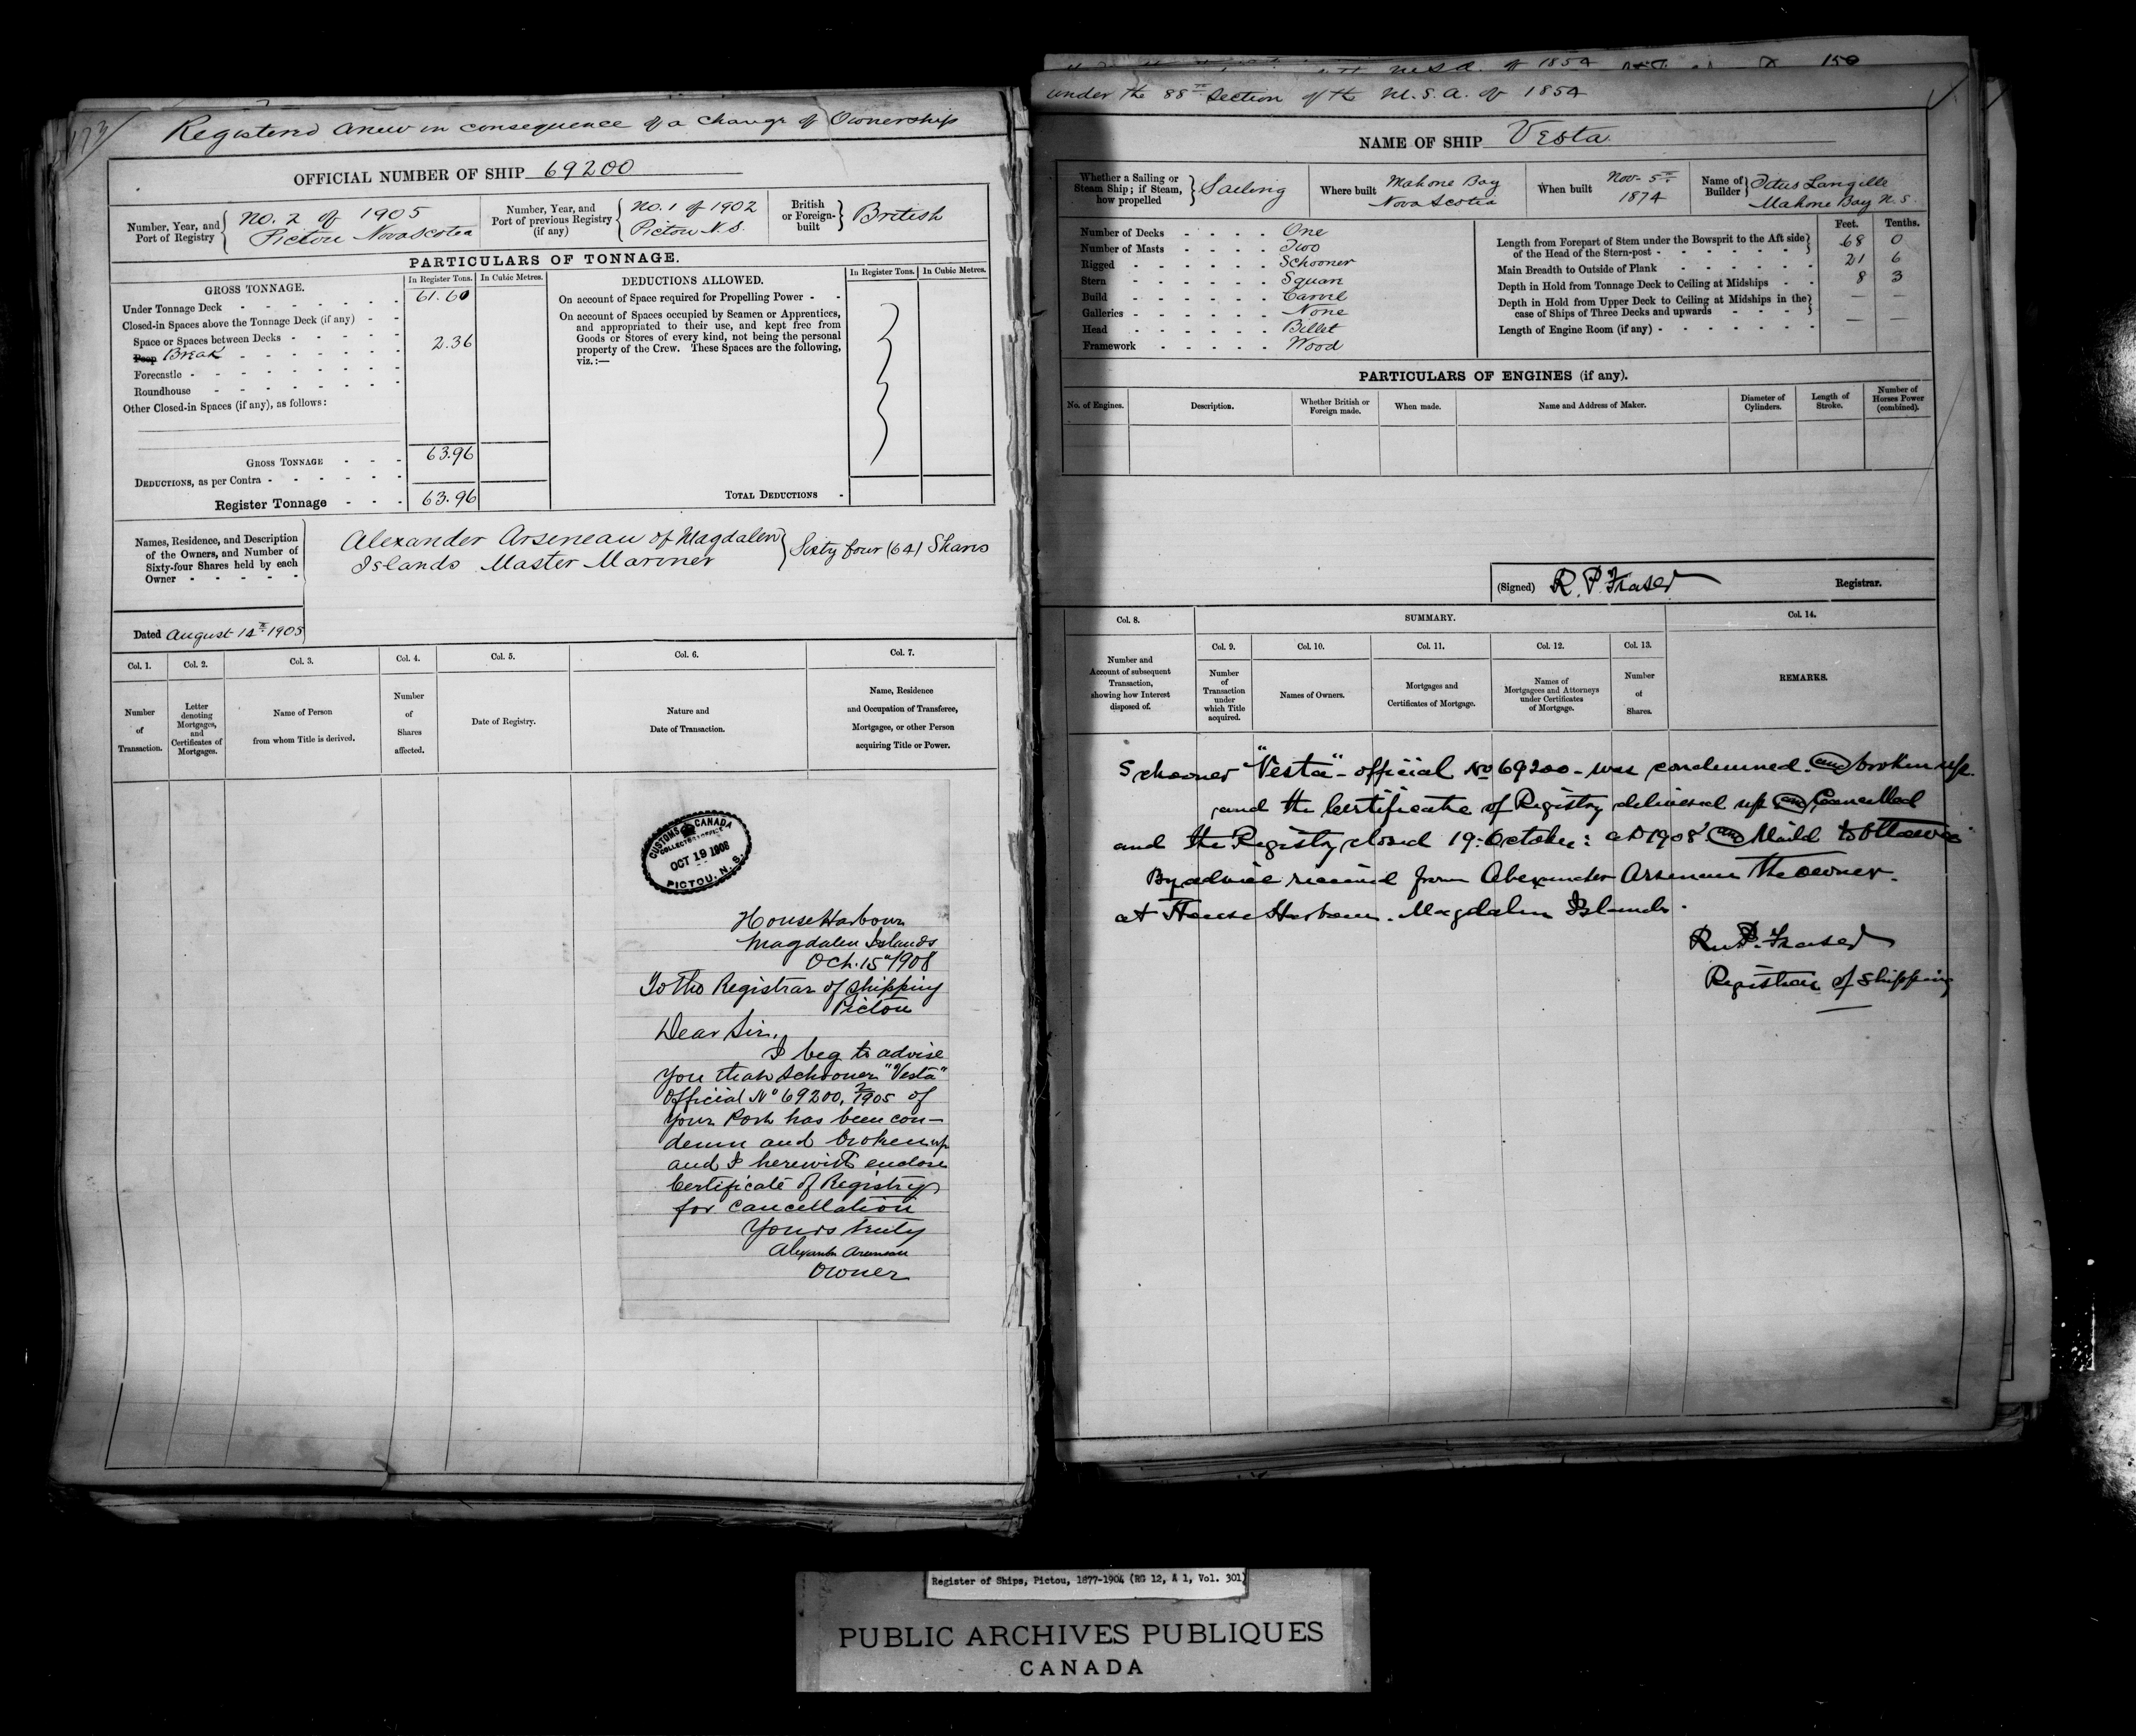 173
Registered anew in consequence of a change of Ownership
OFFICIAL NUMBER OF SHIP 69200
Number, Year, and Port of Registry { No. 2 of 1905 Pictou Nova Scotia
Number, Year, and Port of previous Registry (if any) { No. 1 of 1902 Pictou N.S.
British or Foreign-built } British
PARTICULARS OF TONNAGE.
GROSS TONNAGE. In Register Tons. In Cubic Metres.
Under Tonnage Deck 61.60
Closed-in Spaces above the Tonnage Deck (if any)
Space or Spaces between Decks
Poop Break 2.36
Forecastle
Roundhouse
Other Closed-in Spaces (if any), as follows:
GROSS TONNAGE 63.96
DEDUCTIONS, as per Contra
Register Tonnage 63.96
DEDUCTIONS ALLOWED. In Register Tons. In Cubic Metres.
On account of Space required for Propelling Power
On account of Spaces occupied by Seamen or Apprentices,
and appropriated to their use, and kept free from
Goods or Stores of every kind, not being the personal
property of the Crew. These Spaces are the following,
viz.:—
TOTAL DEDUCTIONS
Names, Residence, and Description
of the Owners, and Number of
Sixty-four Shares held by each
Owner
Alexander Arseneau of Magdalen } Sixty four (64) Shares
Islands Master Mariner
Dated August 14th 1905
Col. 1. Col. 2. Col. 3. Col. 4. Col. 5. Col. 6. Col. 7.
Number of Transaction.
Letter denoting Mortgages, and Certificates of Mortgages.
Name of Person from whom Title is derived.
Number of Shares affected.
Date of Registry.
Nature and Date of Transaction.
Name, Residence and Occupation of Transferee, Mortgagee, or other Person acquiring Title or Power.
CUSTOMS CANADA
OCT 19 1908
PICTOU, N. S.
House Harbour
Magdalen Islands
Oct. 15" 1908
To the Registrar of Shipping
Pictou
Dear Sir,
I beg to advise
you that Schooner "Vesta"
Official No 69200, 2/1905 of
your Port has been con-
demn and broken up
and I herewith enclose
Certificate of Registry
for cancellation
Yours truly
Alexander Arseneau
Owner
150
under the 88th Section of the M.S.A. of 1854
NAME OF SHIP Vesta
Whether a Sailing or Steam Ship; if Steam, how propelled } Sailing
Where built Mahone Bay Nova Scotia
When built Nov. 5th 1874
Name of Builder } Titus Langille Mahone Bay N.S.
Number of Decks One
Number of Masts Two
Rigged Schooner
Stern Square
Build Carvel
Galleries None
Head Billet
Framework Wood
Feet. Tenths.
Length from Forepart of Stem under the Bowsprit to the Aft side of the Head of the Stern-post 68 0
Main Breadth to Outside of Plank 21 6
Depth in Hold from Tonnage Deck to Ceiling at Midships 8 3
Depth in Hold from Upper Deck to Ceiling at Midships in the case of Ships of Three Decks and upwards — —
Length of Engine Room (if any) — —
PARTICULARS OF ENGINES (if any).
No. of Engines. Description. Whether British or Foreign made. When made. Name and Address of Maker. Diameter of Cylinders. Length of Stroke. Number of Horses Power (combined).
(Signed) R. P. Fraser Registrar.
Col. 8. SUMMARY. Col. 14.
Col. 9. Col. 10. Col. 11. Col. 12. Col. 13.
Number and Account of subsequent Transaction, showing how Interest disposed of.
Number of Transaction under which Title acquired.
Names of Owners.
Mortgages and Certificates of Mortgage.
Names of Mortgagees and Attorneys under Certificates of Mortgage.
Number of Shares.
REMARKS.
Schooner "Vesta" - official No 69200 - was condemned and broken up.
and the Certificate of Registry delivered up and Cancelled
and the Registry closed 19 October: AD 1908 and Maild to Ottawa
By advice received from Alexander Arseneau The owner.
at House Harbour. Magdalen Islands.
R. P. Fraser
Registrar of Shipping
Register of Ships, Pictou, 1877-1904 (RG 12, A 1, Vol. 301)
PUBLIC ARCHIVES PUBLIQUES
CANADA